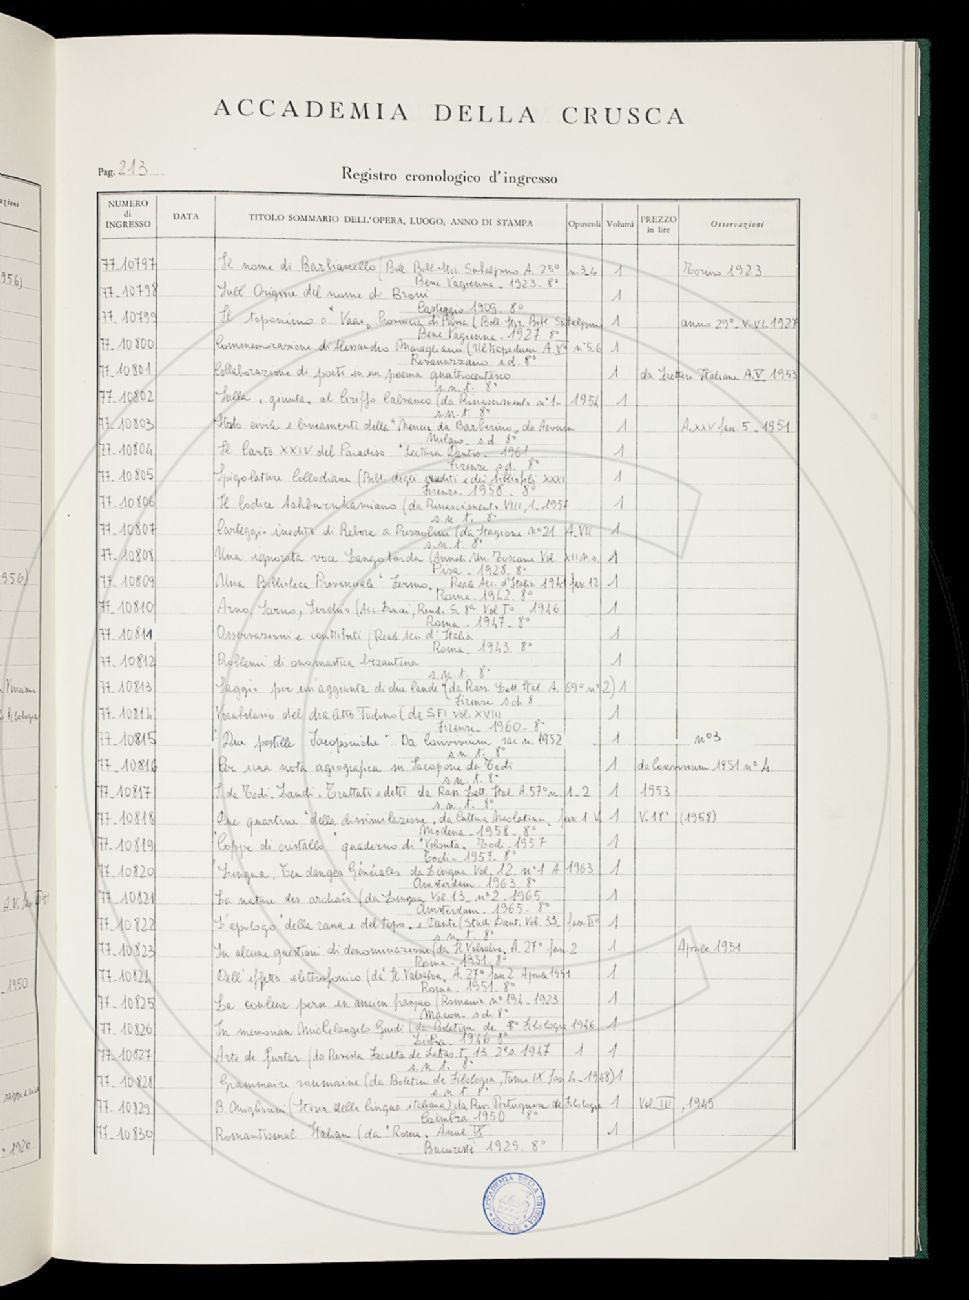 ACCADEMIA DELLA CRUSCA
Pag. 213
Registro cronologico d'ingresso
NUMERO di INGRESSO DATA TITOLO SOMMARIO DELL'OPERA, LUOGO, ANNO DI STAMPA Opuscoli Volumi PREZZO in lire Osservazioni
77_10797 Il nome di Barbianello (Bibl. Boll. A. 25° n. 3-4 1 Torino 1923
Bene Vagienna - 1923 - 8°
77_10798 Sull'Origine del nome di Broni 1
Casteggio 1909. 8°
77_10799 Il toponimo "Vaai" Provincia di 1 anno 29°. V-VI. 1927
Bene Vagienna - 1927 8°
77_10800 Commemorazione di Alessandro Maragliano (Ultrapadum A. V° n° 5-6 1
Rivanazzano s.d. 8°
77_10801 Collaborazione di poeti in un poema quattrocentesco 1 da Lettere Italiane A. V 1953
s.n.t. 8°
77_10802 Sulla "giunta" al Griffo Calvaneo (da Rinascimento n° 1 - 1954 1
s.n.t. 8°
77_10803 Stato civile e lineamenti della "Mencia da Barberino" da Aevum 1 A. XXV fasc. 5 - 1951
Milano - s.d. 8°
77_10804 Il Canto XXIV del Paradiso "Lectura Dantis" - 1961 1
Firenze s.d. 8°
77_10805 Spigolature Collodiane (Bibl. degli eruditi e dei bibliofili XXXI 1
Firenze - 1958 - 8°
77_10806 Il Codice Ashburnhamiano (da Rinascimento VIII, 1 - 1957 1
s.n.t. 8°
77_10807 Carteggio inedito di Rebora a Prezzolini (da Stagione n° 21 A. VII 1
s.n.t. 8°
77_10808 Una ignorata voce Langobarda (Annali Un. Toscane Vol. XII n.s. 1
Pisa - 1928 - 8°
77_10809 Una Biblioteca Provinciale "Fermo. Reale Acc. d'Italia 1941 fasc. 12 1
Roma - 1942 - 8°
77_10810 Arno, Sarno, Serchio (Acc. Lincei, Rend. S. 8ª Vol. I° 1946 1
Roma - 1947 - 8°
77_10811 Osservazioni e contributi (Reale Acc. d'Italia 1
Roma - 1943. 8°
77_10812 Problemi di onomastica bizantina 1
s.n.t. 8°
77_10813 Saggio per un'aggiunta di due laude (da Rass. Lett. Ital. A. 69° n° 2) 1
Firenze s.d. 8
77_10814 Vocabolario del dialetto Todino (da SFI vol. XVIII 1
Firenze - 1960 - 8°
77_10815 "Due postille Jacoponiche" Da Convivium n. 1952 1 n° 3
s.n.t. 8°
77_10816 Per una nota agiografica su Jacopone da Todi 1 da Convivium 1951 n° 4
s.n.t. 8°
77_10817 J. da Todi. Laudi, Trattato e detti da Rass. Lett. Ital. A. 57° n. 1-2 1 1953
s.n.t. 8°
77_10818 Due quartine "della dissimilazione" da Cultura Neolatina, fasc. 1 V. 1 V. 18° (1958)
Modena - 1958 - 8°
77_10819 "Coppe di cristallo" quaderno di "Volontà" Todi 1957 1
Todi - 1957 - 8°
77_10820 "Lingua, Tendances Générales da Lingua Vol. 12 n° 1 A 1963 1
Amsterdam - 1963. 8°
77_10821 La nature des archaïs (da Lingua Vol 13 n° 2 - 1965 1
Amsterdam - 1965 - 8°
77_10822 L'apologo "della rana e del topo" e Dante (Studi Dant. Vol. 33 fasc. II° 1
s.n.t. 8°
77_10823 In alcune questioni di denominazione (da Il Valsalva, A. 27° fasc. 2 1 Aprile 1951
Roma - 1951. 8°
77_10824 Dell'effetto elettrofonico (da Il Valsalva, A. 27° fasc. 2 Aprile 1951 1
Roma - 1951 - 8°
77_10825 La couleur perse en ancien français (Romania n° 194 - 1923 1
Macon - s.d. 8°
77_10826 In memoriam Michelangelo Guidi (da Boletim de Filologia 1946 1
Lisboa - 1946 8°
77_10827 Arte de Furtar (da Revista Faculta de Letras. t. 13 2ª s. 1947 1 1
s.n.t. 8°
77_10828 Grammaire roumaine (da Boletim de Filologia, Tomo IX fasc. 4 - 1948) 1
s.n.t. 8°
77_10829 B. Migliorini (Storia della lingua italiana) da Rev. Portuguesa de Filologia 1 Vol. III, 1949
Coimbra 1950 8°
77_10830 Romantismul Italian (da "Roma" Anul IX 1
Bucuresti 1929. 8°
ACCADEMIA DELLA CRUSCA
FIRENZE